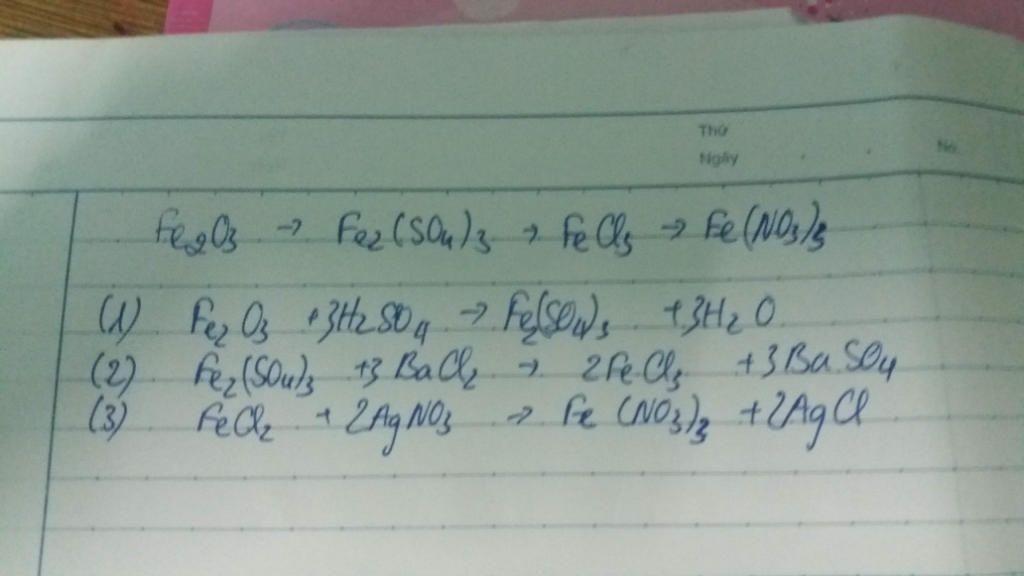 Thứ
Ngày No.
Fe2O3 → Fe2(SO4)3 → FeCl3 → Fe(NO3)3
(1) Fe2O3 +3H2SO4 → Fe2(SO4)3 +3H2O
(2) Fe2(SO4)3 +3BaCl2 → 2FeCl3 +3BaSO4
(3) FeCl2 + 2AgNO3 → Fe(NO3)3 +2AgCl